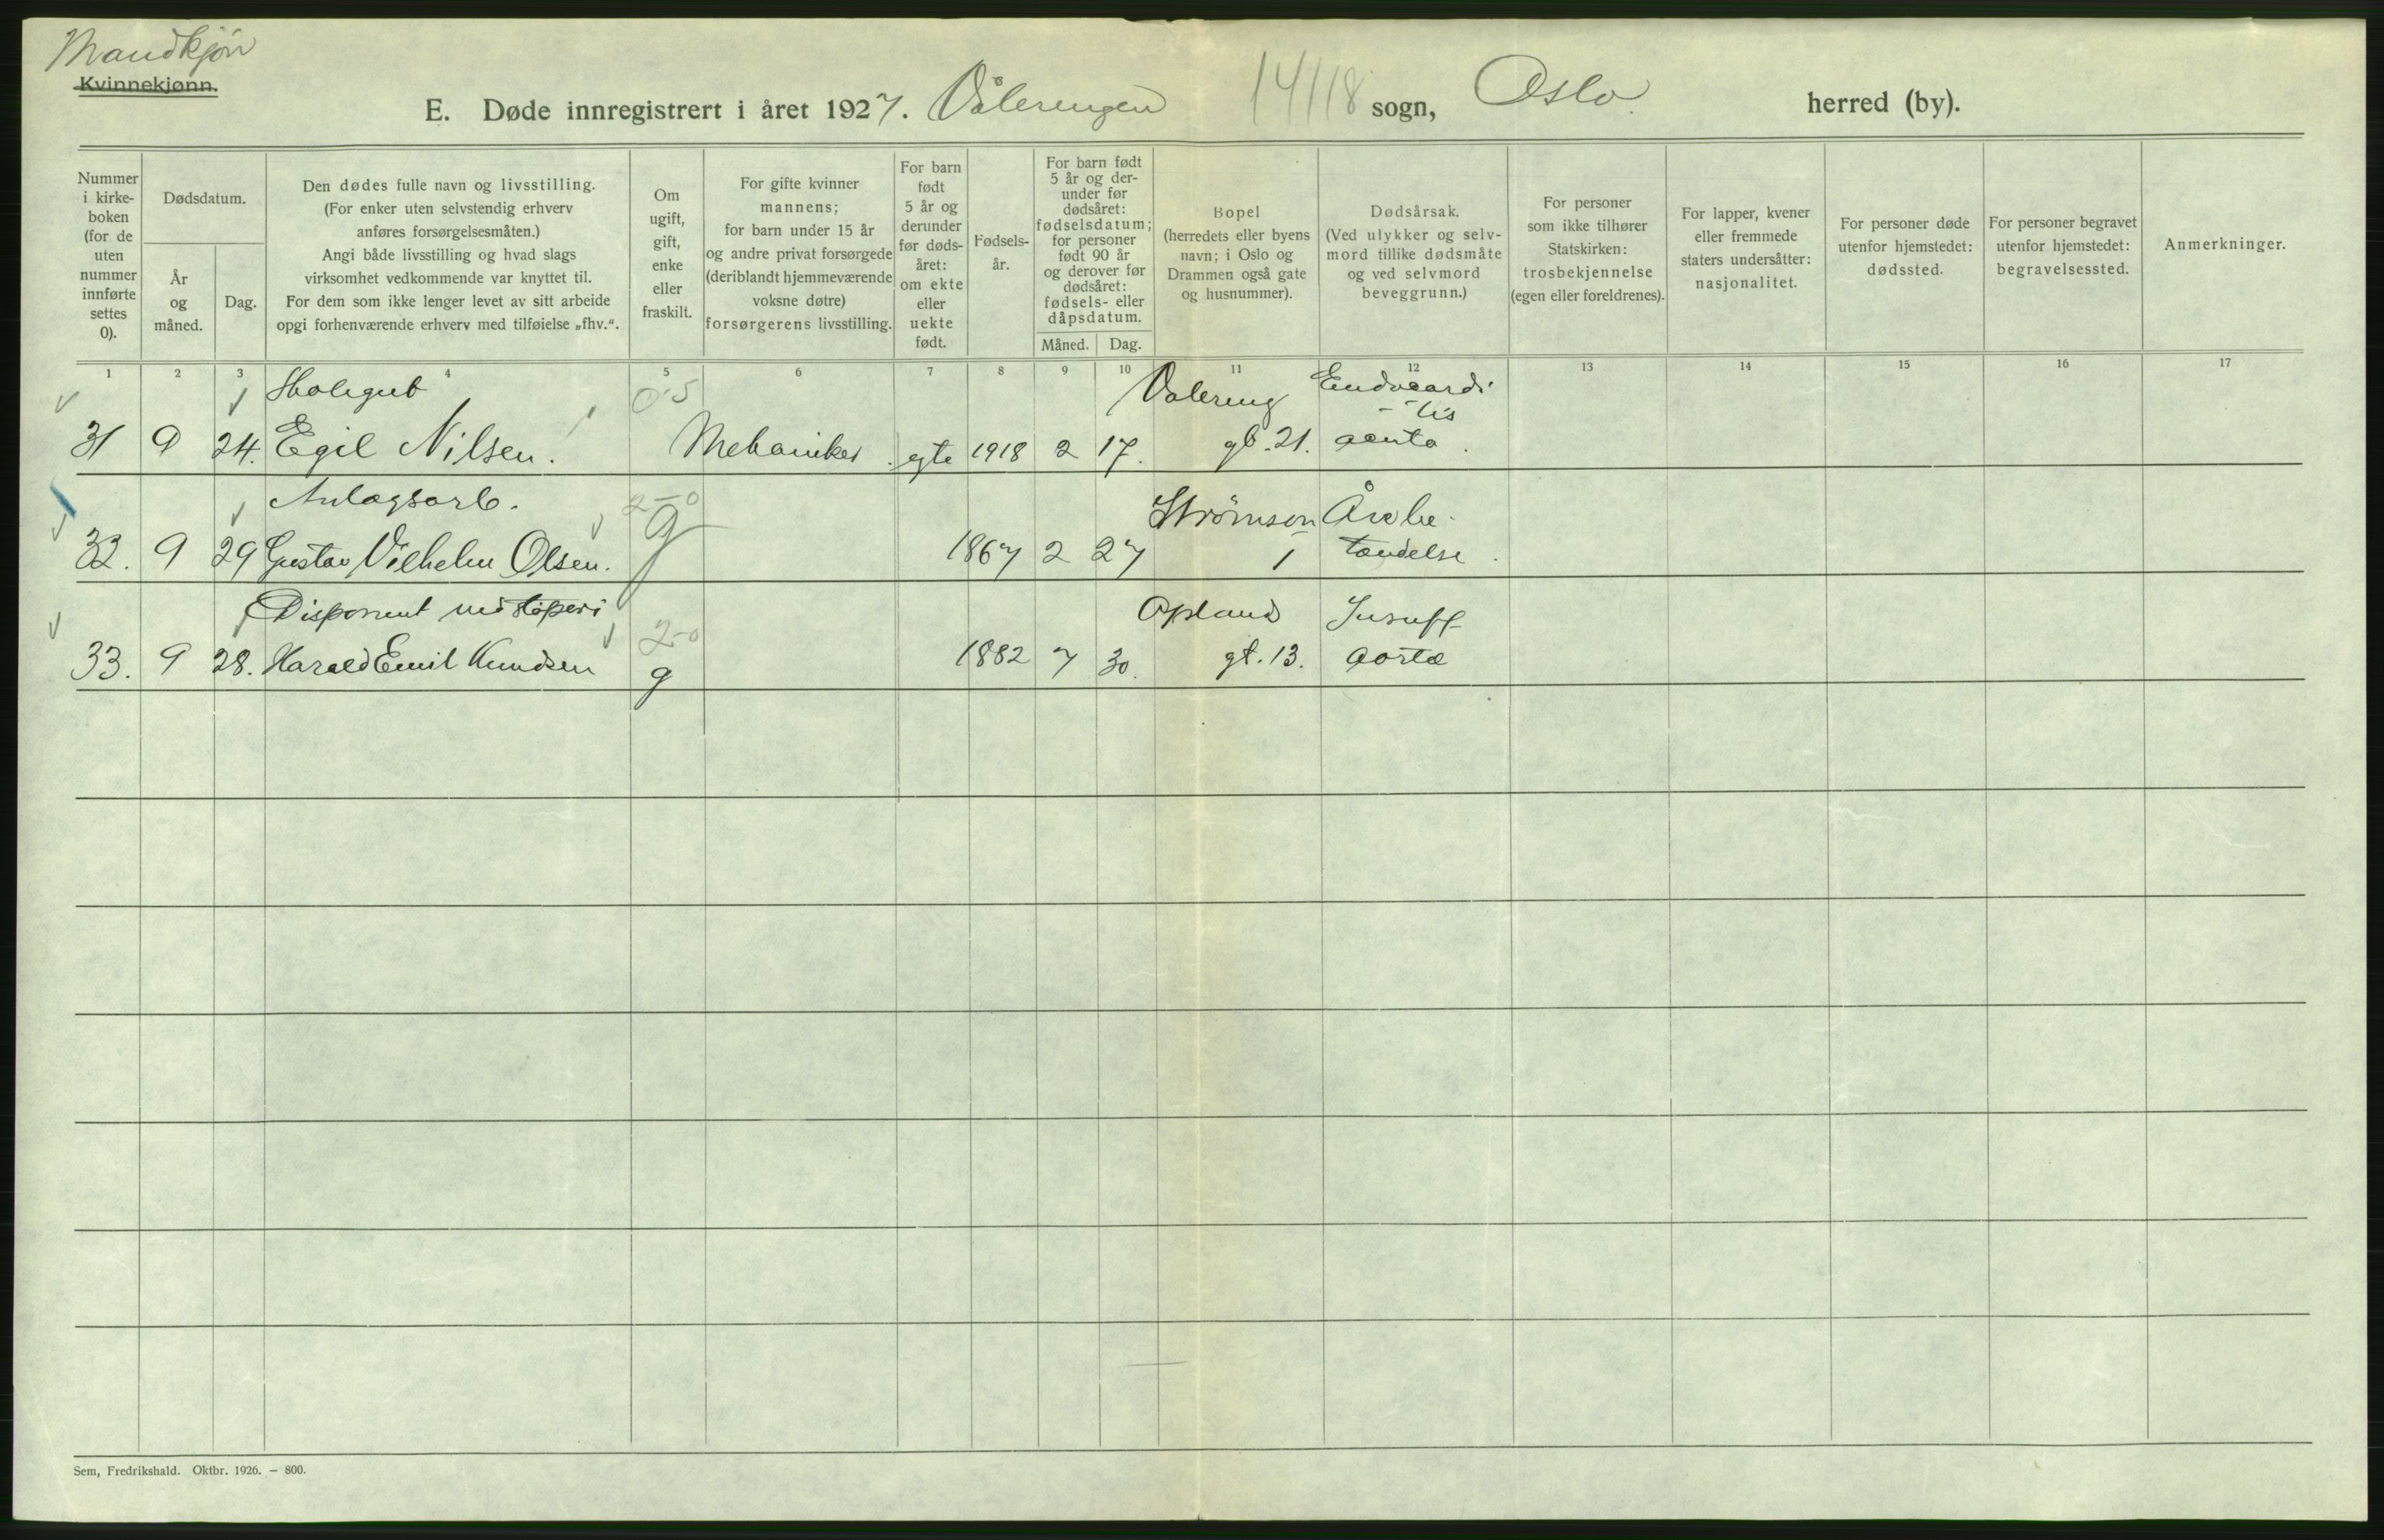 Mandkjön
Kvinnekjønn.
E. Døde innregistrert i året 1927. Vålerengen 14118 sogn, Oslo herred (by).
Nummer i kirkeboken (for de uten nummer innførte settes 0).
Dødsdatum.
År og måned.
Dag.
Den dødes fulle navn og livsstilling.
(For enker uten selvstendig erhverv
anføres forsørgelsesmåten.)
Angi både livsstilling og hvad slags
virksomhet vedkommende var knyttet til.
For dem som ikke lenger levet av sitt arbeide
opgi forhenværende erhverv med tilføielse „fhv.“.
Om ugift, gift, enke eller fraskilt.
For gifte kvinner
mannens;
for barn under 15 år
og andre privat forsørgede
(deriblandt hjemmeværende
voksne døtre)
forsørgerens livsstilling.
For barn født 5 år og derunder før dødsåret: om ekte eller uekte født.
Fødselsår.
For barn født
5 år og derunder før
dødsåret:
fødselsdatum;
for personer
født 90 år
og derover før
dødsåret:
fødsels- eller
dåpsdatum.
Måned. Dag.
Bopel
(herredets eller byens
navn; i Oslo og
Drammen også gate
og husnummer).
Dødsårsak.
(Ved ulykker og selv-
mord tillike dødsmåte
og ved selvmord
beveggrunn.)
For personer
som ikke tilhører
Statskirken:
trosbekjennelse
(egen eller foreldrenes).
For lapper, kvener
eller fremmede
staters undersåtter:
nasjonalitet.
For personer døde
utenfor hjemstedet:
dødssted.
For personer begravet
utenfor hjemstedet:
begravelsessted.
Anmerkninger.
1 2 3 4 5 6 7 8 9 10 11 12 13 14 15 16 17
Skolegut 0-5 Valereng Endocardi
-tis
31 9 24. Egil Nilsen. Mekaniker. egte 1918 2 17. gt. 21. acuta.
Anlægsarb. 2-0 Strömsvn Årebe-
32. 9 29 Gustav Vilhelm Olsen. g 1867 2 27 1 tændelse.
Disponent ved støperi 2-0 Opland Insuff
33. 9 28. Harald Emil Knudsen g 1882 7 30. gt. 13. aortæ
Sem, Fredrikshald. Oktbr. 1926. — 800.